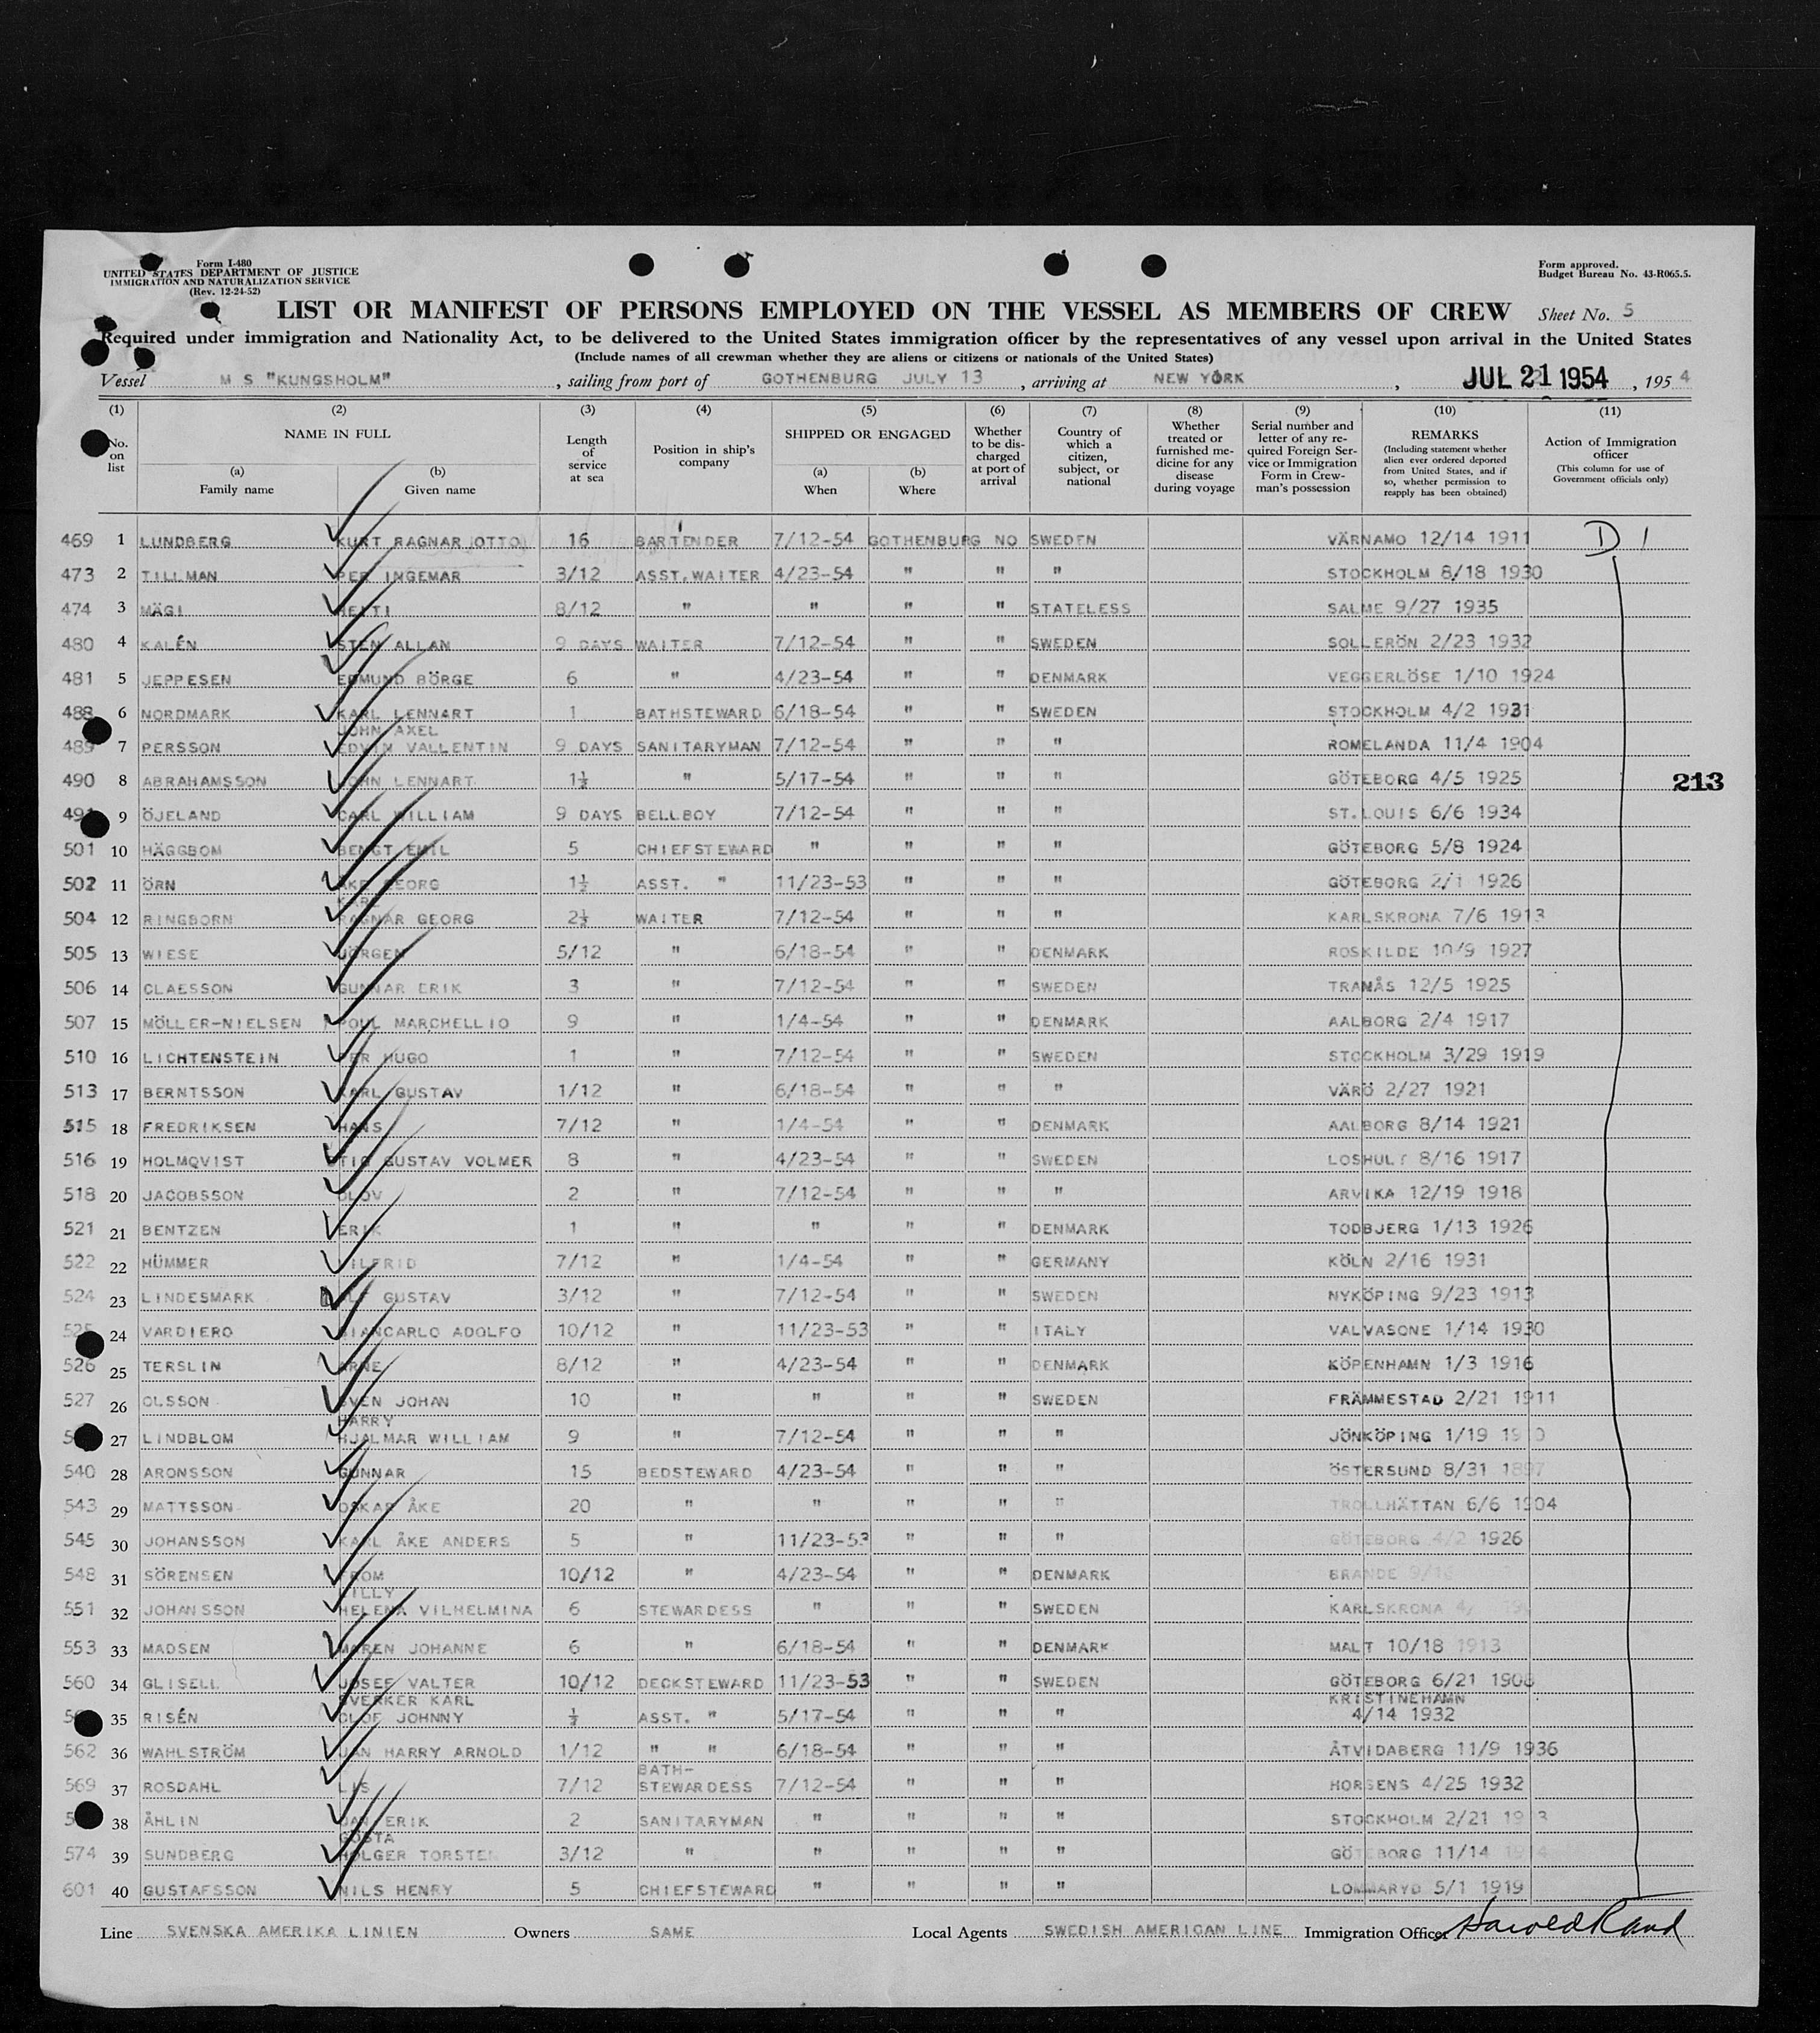 Form I-480
UNITED STATES DEPARTMENT OF JUSTICE
IMMIGRATION AND NATURALIZATION SERVICE
(Rev. 12-24-52)
Form approved.
Budget Bureau No. 43-R065.5.
LIST OR MANIFEST OF PERSONS EMPLOYED ON THE VESSEL AS MEMBERS OF CREW Sheet No. 5
Required under immigration and Nationality Act, to be delivered to the United States immigration officer by the representatives of any vessel upon arrival in the United States
(Include names of all crewman whether they are aliens or citizens or nationals of the United States)
Vessel M S "KUNGSHOLM", sailing from port of GOTHENBURG JULY 13, arriving at NEW YORK, JUL 21 1954, 1954
(1) No. on list
(2) NAME IN FULL
(a) Family name
(b) Given name
(3) Length of service at sea
(4) Position in ship's company
(5) SHIPPED OR ENGAGED
(a) When
(b) Where
(6) Whether to be discharged at port of arrival
(7) Country of which a citizen, subject, or national
(8) Whether treated or furnished medicine for any disease during voyage
(9) Serial number and letter of any required Foreign Service or Immigration Form in Crewman's possession
(10) REMARKS (Including statement whether alien ever ordered deported from United States, and if so, whether permission to reapply has been obtained)
(11) Action of Immigration officer (This column for use of Government officials only)
469 1 LUNDBERG KURT RAGNAR OTTO 16 BARTENDER 7/12-54 GOTHENBURG NO SWEDEN VÄRNAMO 12/14 1911 D 1
473 2 TILLMAN PER INGEMAR 3/12 ASST.WAITER 4/23-54 " " " STOCKHOLM 8/18 1930
474 3 MÄGI HEITI 8/12 " " " " STATELESS SALME 9/27 1935
480 4 KALÉN STEN ALLAN 9 DAYS WAITER 7/12-54 " " SWEDEN SOLLERÖN 2/23 1932
481 5 JEPPESEN EDMUND BÖRGE 6 " 4/23-54 " " DENMARK VEGGERLÖSE 1/10 1924
488 6 NORDMARK KARL LENNART 1 BATHSTEWARD 6/18-54 " " SWEDEN STOCKHOLM 4/2 1931
489 7 PERSSON JOHN AXEL EDVIN VALLENTIN 9 DAYS SANITARYMAN 7/12-54 " " " ROMELANDA 11/4 1904
490 8 ABRAHAMSSON JOHN LENNART 1½ " 5/17-54 " " " GÖTEBORG 4/5 1925
213
9 ÖJELAND CARL WILLIAM 9 DAYS BELLBOY 7/12-54 " " " ST.LOUIS 6/6 1934
501 10 HÄGGBOM BENGT EMIL 5 CHIEFSTEWARD " " " " GÖTEBORG 5/8 1924
502 11 ÖRN ÅKE GEORG 1½ ASST. " 11/23-53 " " " GÖTEBORG 2/1 1926
504 12 RINGBORN KARL RAGNAR GEORG 2½ WAITER 7/12-54 " " " KARLSKRONA 7/6 1913
505 13 WIESE JÖRGEN 5/12 " 6/18-54 " " DENMARK ROSKILDE 10/9 1927
506 14 CLAESSON GUNNAR ERIK 3 " 7/12-54 " " SWEDEN TRANÅS 12/5 1925
507 15 MÖLLER-NIELSEN POUL MARCHELLIO 9 " 1/4-54 " " DENMARK AALBORG 2/4 1917
510 16 LICHTENSTEIN PER HUGO 1 " 7/12-54 " " SWEDEN STOCKHOLM 3/29 1919
513 17 BERNTSSON KARL GUSTAV 1/12 " 6/18-54 " " " VÄRÖ 2/27 1921
515 18 FREDRIKSEN HANS 7/12 " 1/4-54 " " DENMARK AALBORG 8/14 1921
516 19 HOLMQVIST STIG GUSTAV VOLMER 8 " 4/23-54 " " SWEDEN LOSHULT 8/16 1917
518 20 JACOBSSON OLOV 2 " 7/12-54 " " " ARVIKA 12/19 1918
521 21 BENTZEN ERIK 1 " " " " DENMARK TODBJERG 1/13 1926
522 22 HÜMMER WILFRID 7/12 " 1/4-54 " " GERMANY KÖLN 2/16 1931
524 23 LINDESMARK GUSTAV 3/12 " 7/12-54 " " SWEDEN NYKÖPING 9/23 1913
525 24 VARDIERO GIANCARLO ADOLFO 10/12 " 11/23-53 " " ITALY VALVASONE 1/14 1930
526 25 TERSLIN ARNE 8/12 " 4/23-54 " " DENMARK KÖPENHAMN 1/3 1916
527 26 OLSSON SVEN JOHAN 10 " " " " SWEDEN FRÄMMESTAD 2/21 1911
27 LINDBLOM HARRY HJALMAR WILLIAM 9 " 7/12-54 " " " JÖNKÖPING 1/19
540 28 ARONSSON GUNNAR 15 BEDSTEWARD 4/23-54 " " " ÖSTERSUND 8/31 1897
543 29 MATTSSON OSKAR ÅKE 20 " " " " " TROLLHÄTTAN 6/6 1904
545 30 JOHANSSON KARL ÅKE ANDERS 5 " 11/23-53 " " " GÖTEBORG 4/2 1926
548 31 SÖRENSEN 10/12 " 4/23-54 " " DENMARK BRANDE
551 32 JOHANSSON LILLY HELENA VILHELMINA 6 STEWARDESS " " " SWEDEN KARLSKRONA
553 33 MADSEN MAREN JOHANNE 6 " 6/18-54 " " DENMARK MALT 10/18 1913
560 34 GLISELL JOSEF VALTER 10/12 DECKSTEWARD 11/23-53 " " SWEDEN GÖTEBORG 6/21 1908
35 RISÉN SVERKER KARL OLOF JOHNNY ½ ASST. " 5/17-54 " " " KRISTINEHAMN 4/14 1932
562 36 WAHLSTRÖM JAN HARRY ARNOLD 1/12 " " 6/18-54 " " " ÅTVIDABERG 11/9 1936
569 37 ROSDAHL LIS 7/12 BATH-STEWARDESS 7/12-54 " " " HORSENS 4/25 1932
38 ÅHLIN JAN ERIK 2 SANITARYMAN " " " " STOCKHOLM 2/21
574 39 SUNDBERG GÖSTA HOLGER TORSTEN 3/12 " " " " " GÖTEBORG 11/14
601 40 GUSTAFSSON NILS HENRY 5 CHIEFSTEWARD " " " " LOMMARYD 5/1 1919
Line SVENSKA AMERIKA LINIEN Owners SAME Local Agents SWEDISH AMERICAN LINE Immigration Officer Harold Rand